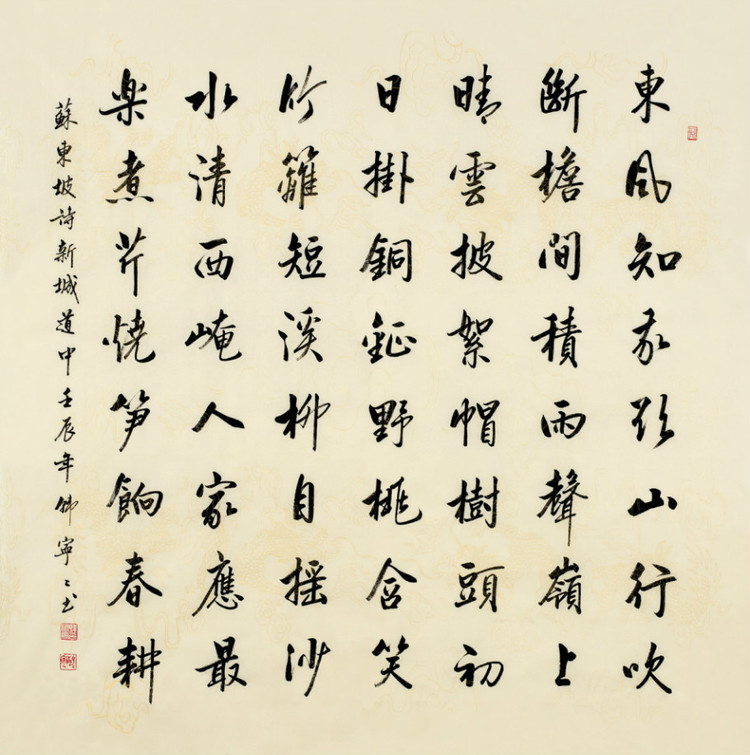 東風知我欲山行吹
斷檐間積雨聲嶺上
晴雲披絮帽樹頭初
日掛銅鉦野桃含笑
竹籬短溪柳自摇沙
水清西崦人家應最
楽煮芹燒笋餉春耕
蘇東坡詩新城道中壬辰年韓寧〻书